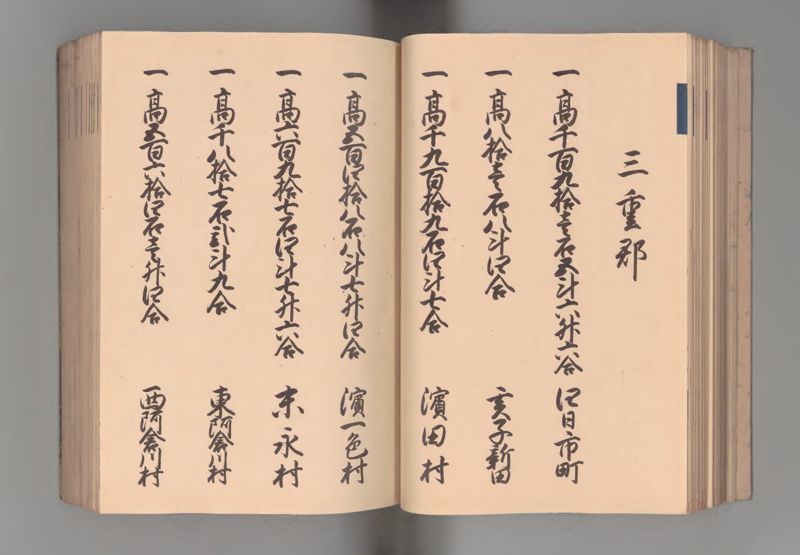 三重郡
一 高千百九拾壱石五斗六升六合 四日市町
一 高八拾壱石八斗四合 亥子新田
一 高千九百拾九石四斗七合 濱田村
一 高五百四拾八石八斗七升四合 濱一色村
一 高六百九拾七石四斗七升六合 末永村
一 高千八拾七石弐斗九合 東阿倉川村
一 高五百六拾四石壱升四合 西阿倉川村